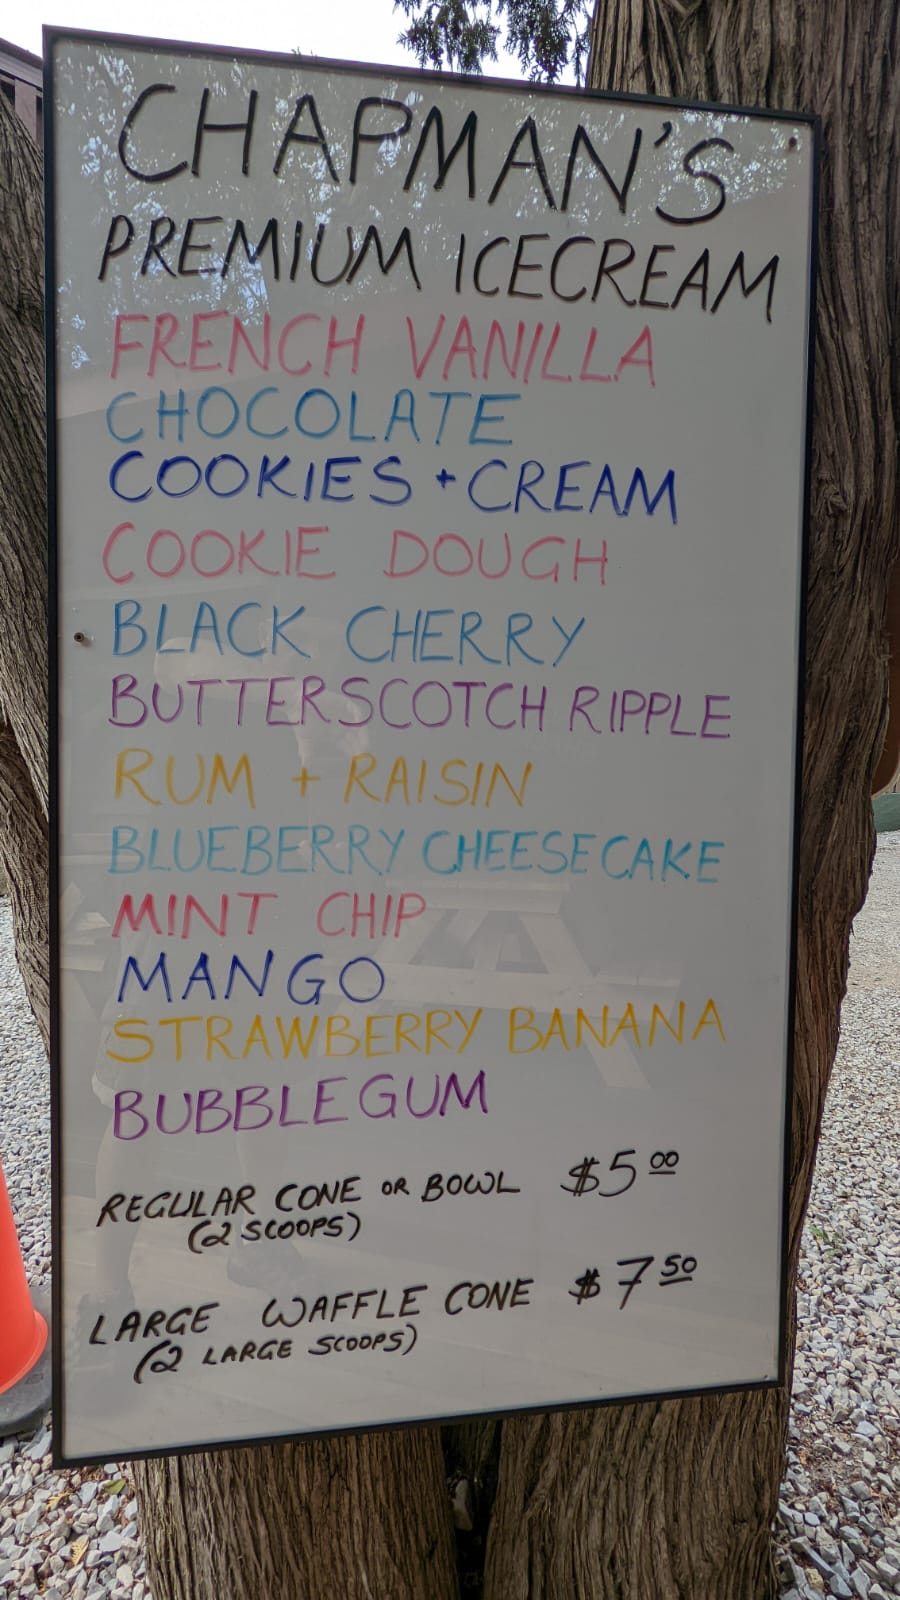 CHAPMAN'S
PREMIUM ICECREAM
FRENCH VANILLA
CHOCOLATE
COOKIES + CREAM
COOKIE DOUGH
BLACK CHERRY
BUTTERSCOTCH RIPPLE
RUM + RAISIN
BLUEBERRY CHEESECAKE
MINT CHIP
MANGO
STRAWBERRY BANANA
BUBBLEGUM
REGULAR CONE OR BOWL $5 00
(2 SCOOPS)
LARGE WAFFLE CONE $7 50
(2 LARGE SCOOPS)